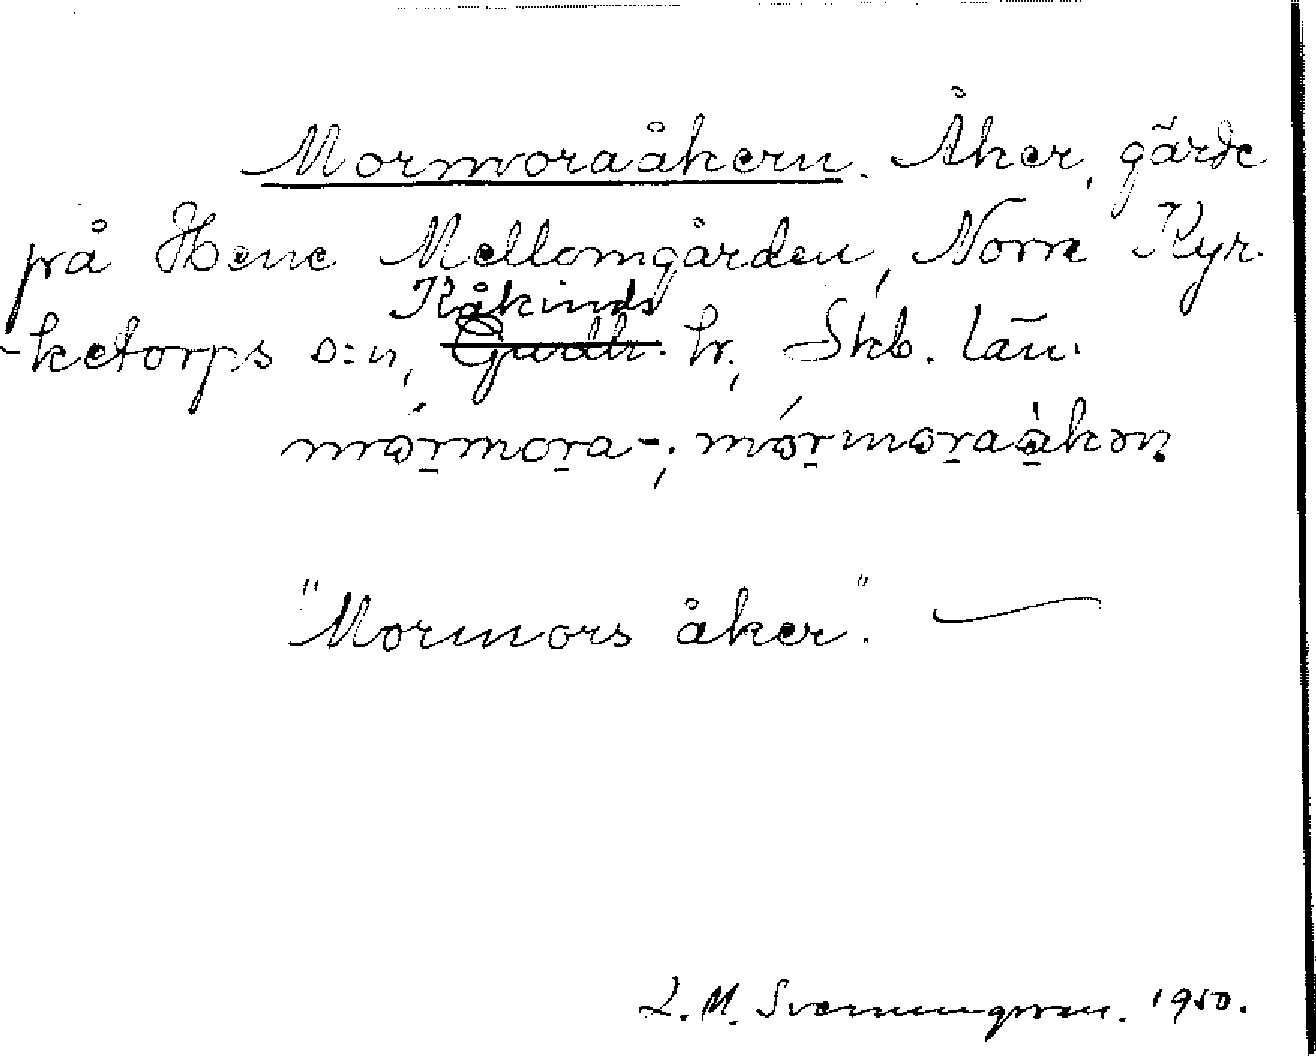 Mormoraåkern. Åker, gärde
på Hene Mellomgården, Norra Kyr-
Kåkinds
-ketorps s:n, Gudh. hr, Skb. län.
mórmora-; mórmoraàkən
"Mormors åker".
L. M. Svenungsson. 1950.